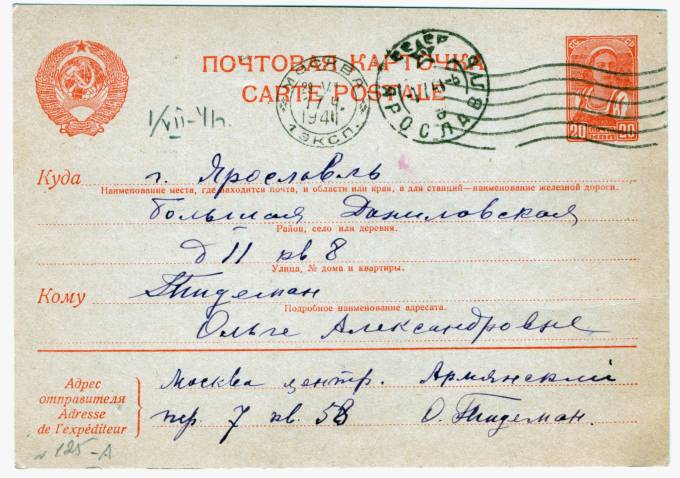 ПОЧТОВАЯ КАРТОЧКА
CARTE POSTALE
МОСКВА
17
1941
1 ЭКСП.
ЯРОСЛАВЛЬ
20 КОП 20
1/VII-41г.
Куда г. Ярославль
Наименование места, где находится почта, и области или края, а для станций—наименование железной дороги.
Большая Даниловская
Район, село или деревня.
д 11 кв 8
Улица, № дома и квартиры.
Кому Тидеман
Подробное наименование адресата.
Ольге Александровне
Адрес отправителя
Adresse de l'expéditeur
Москва центр. Армянский
пер. 7 кв. 58 О. Тидеман.
125-А